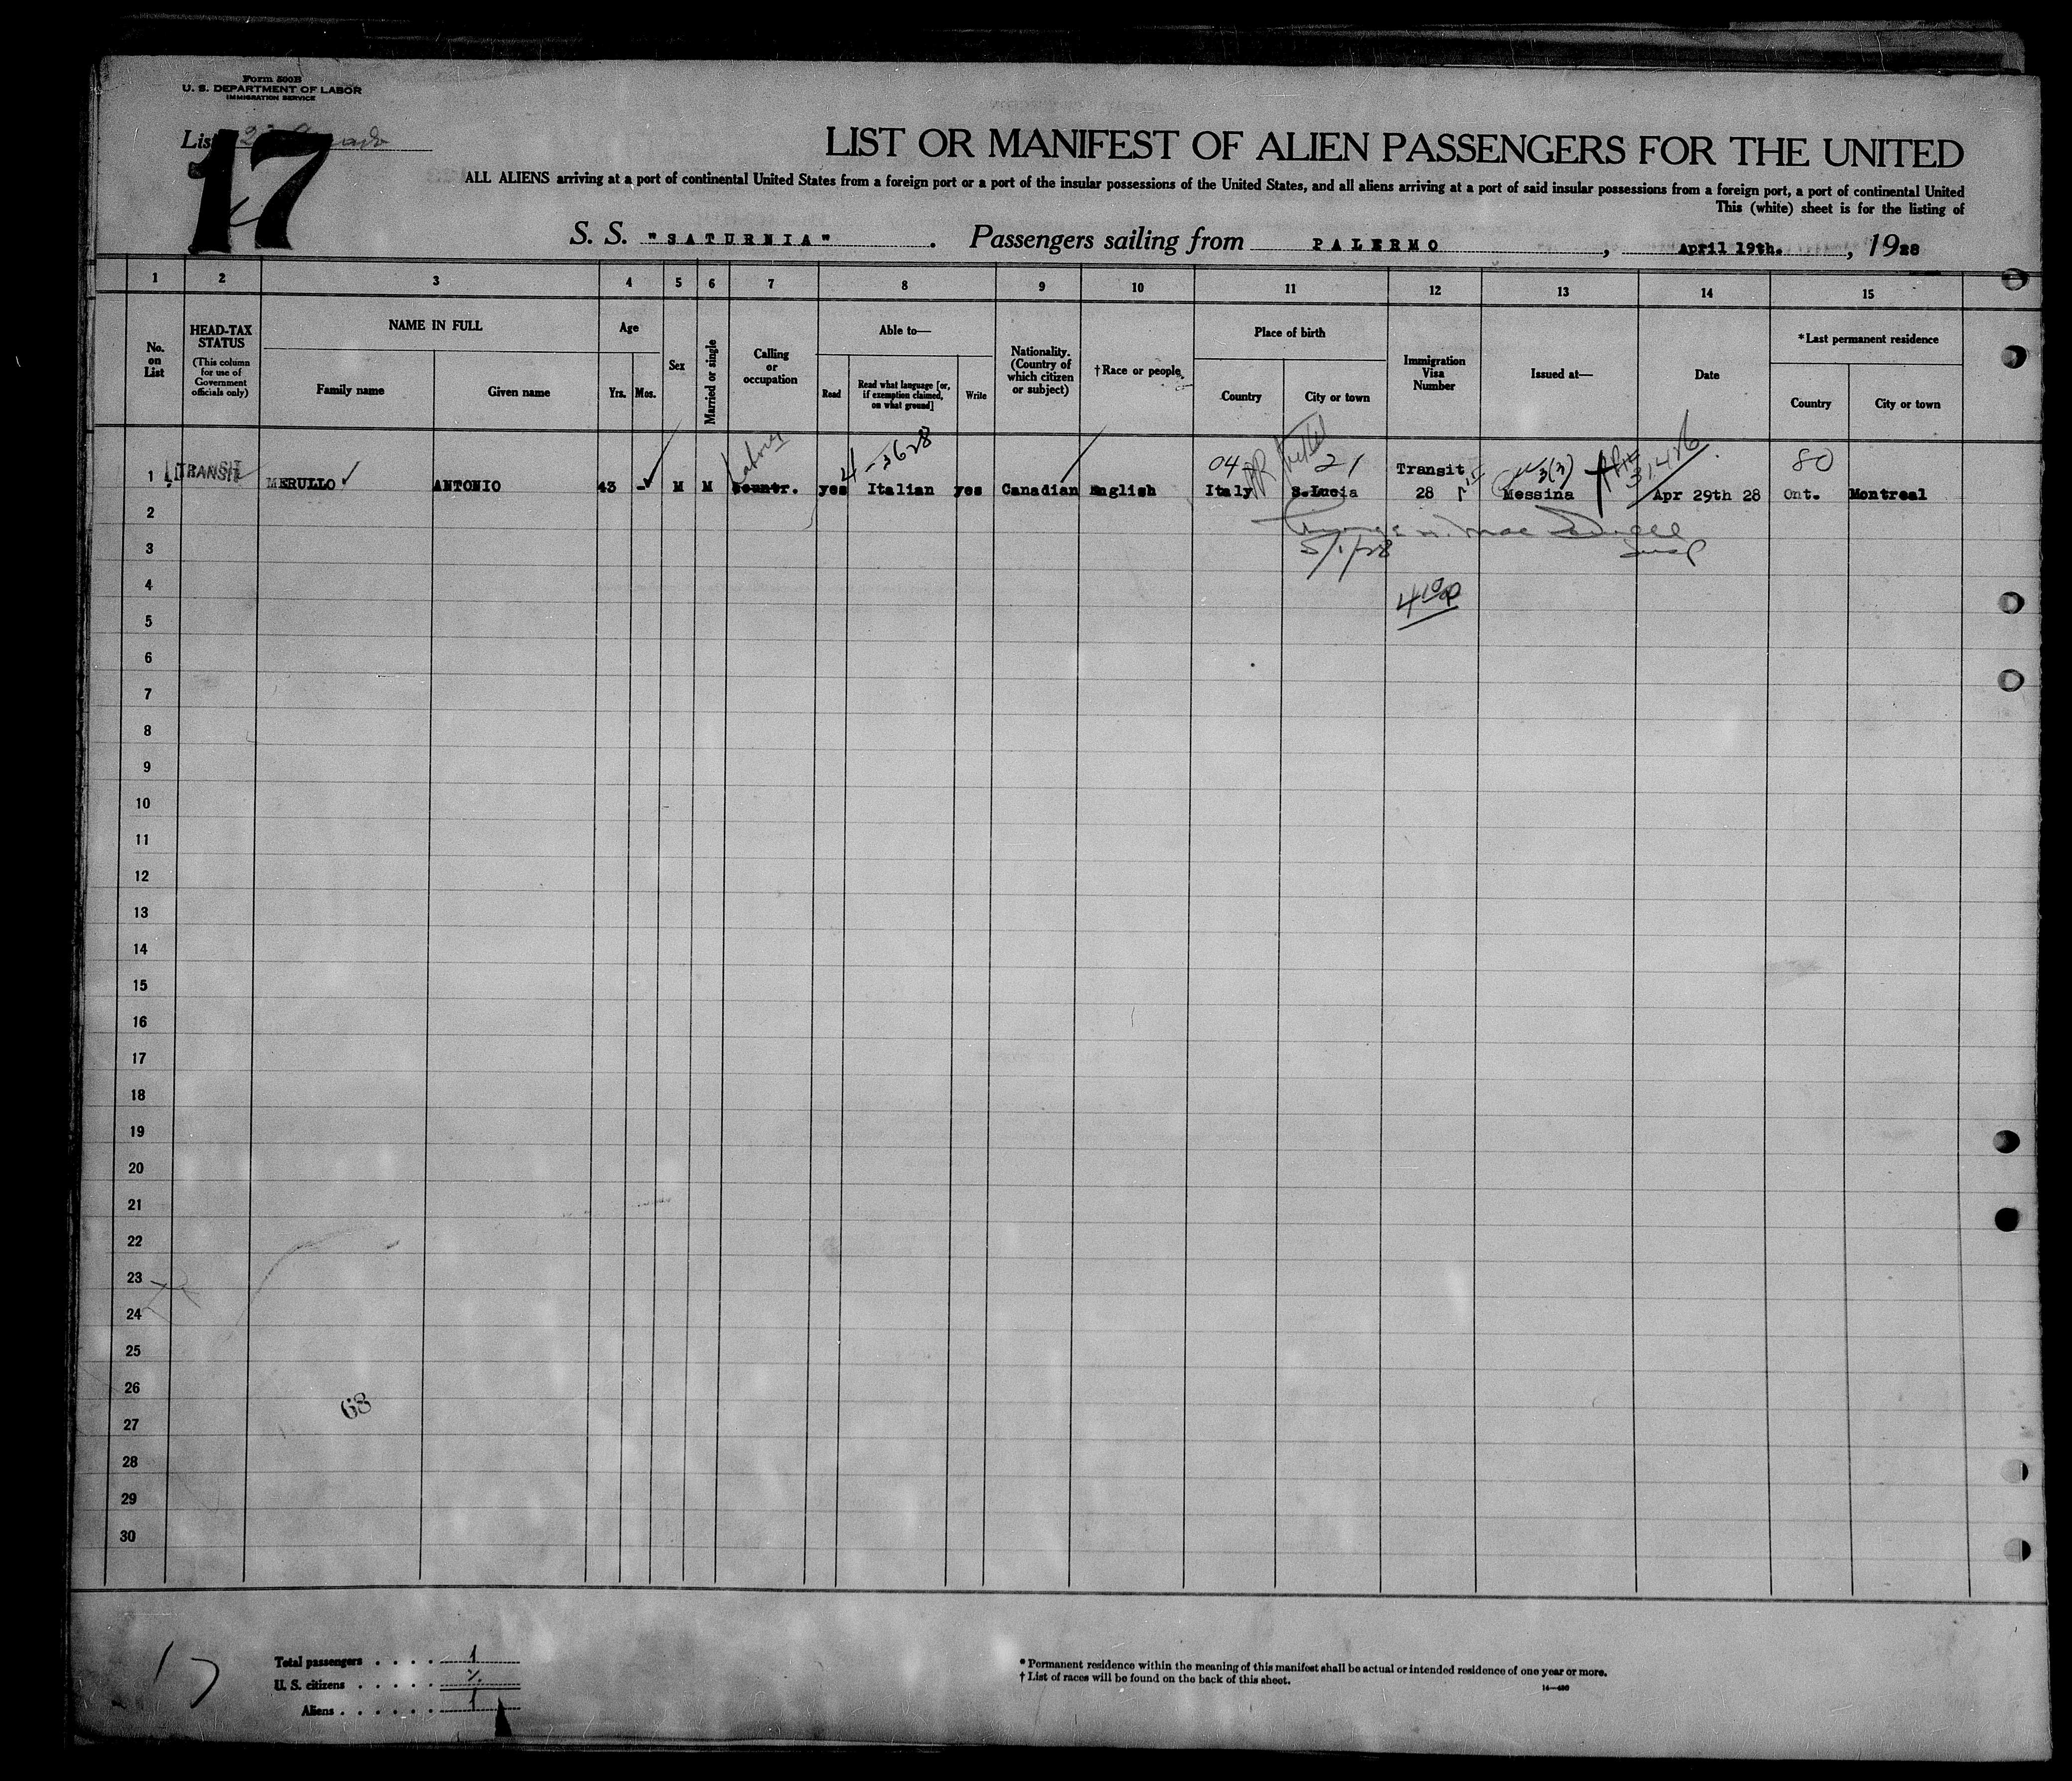 Form 500B
U. S. DEPARTMENT OF LABOR
IMMIGRATION SERVICE
List
17
LIST OR MANIFEST OF ALIEN PASSENGERS FOR THE UNITED
ALL ALIENS arriving at a port of continental United States from a foreign port or a port of the insular possessions of the United States, and all aliens arriving at a port of said insular possessions from a foreign port, a port of continental United
This (white) sheet is for the listing of
S. S. "SATURNIA". Passengers sailing from PALERMO, April 19th., 1928
1 2 3 4 5 6 7 8 9 10 11 12 13 14 15
No. on List
HEAD-TAX STATUS
(This column for use of Government officials only)
NAME IN FULL
Family name
Given name
Age
Yrs.
Mos.
Sex
Married or single
Calling or occupation
Able to—
Read
Read what language [or, if exemption claimed, on what ground]
Write
Nationality. (Country of which citizen or subject)
†Race or people
Place of birth
Country
City or town
Immigration Visa Number
Issued at—
Date
*Last permanent residence
Country
City or town
Labour 4-3628 04- 21 3(3) 31426 80
1 TRANSIT MERULLO ANTONIO 43 - M M countr. yes Italian yes Canadian English Italy S.Lucia Transit 28 Messina Apr 29th 28 Ont. Montreal
2
3
5/1/28
4
4
5
6
7
8
9
10
11
12
13
14
15
16
17
18
19
20
21
22
23
24
25
26
68
27
28
29
30
17
Total passengers . . . . 1
U. S. citizens . . . . .
Aliens . . . . . . 1
* Permanent residence within the meaning of this manifest shall be actual or intended residence of one year or more.
† List of races will be found on the back of this sheet.
14—430